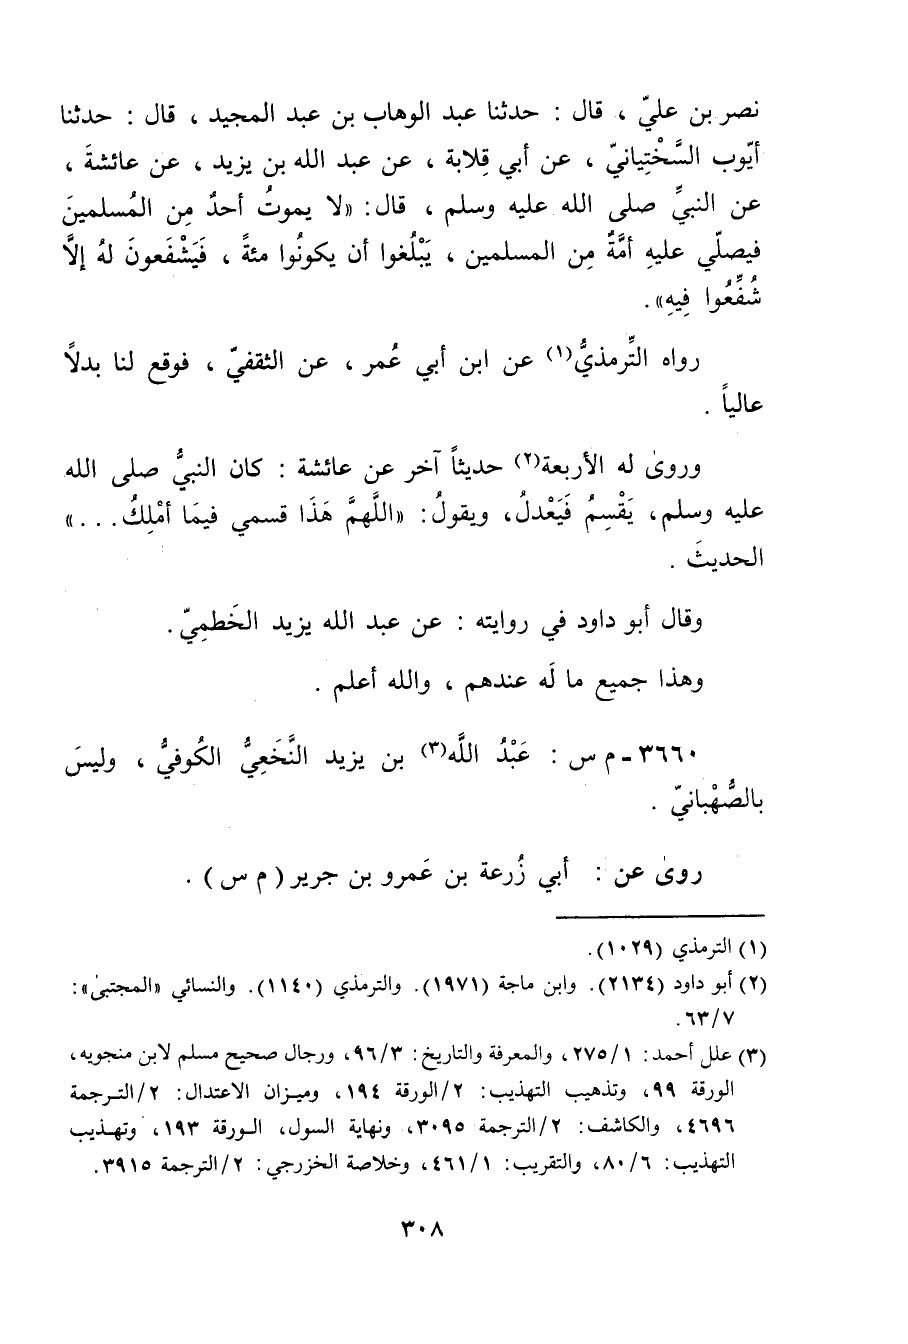 نصر بن عليّ ، قال : حدثنا عبد الوهاب بن عبد المجيد ، قال : حدثنا
أيّوب السَّخْتِيانيّ ، عن أبي قِلابة ، عن عبد الله بن يزيد ، عن عائشةَ ،
عن النبيِّ صلى الله عليه وسلم ، قال: «لا يموتُ أحدٌ مِن المُسلمينَ
فيصلّي عليهِ أمَّةٌ مِن المسلمين ، يَبْلُغوا أن يكونُوا مئةً ، فَيَشْفَعونَ لهُ إلاَّ
شُفِّعُوا فِيهِ».
رواه التِّرمذيُّ(١) عن ابن أبي عُمر ، عن الثقفيّ ، فوقع لنا بدلاً
عالياً .
وروىٰ له الأربعة(٢) حديثاً آخر عن عائشة : كان النبيُّ صلى الله
عليه وسلم، يَقْسِمُ فَيَعْدلُ، ويقولُ: «اللَّهمَّ هَذَا قسمي فيمَا أمْلِكُ...»
الحديثَ .
وقال أبو داود في روايته : عن عبد الله يزيد الخَطميّ.
وهذا جميع ما لَه عندهم ، والله أعلم .
٣٦٦٠ - م س : عَبْدُ اللَّه(٣) بن يزيد النَّخَعِيُّ الكُوفيُّ ، وليسَ
بالصُّهْبانيّ .
روىٰ عن : أبي زُرعة بن عَمرو بن جرير ( م س ) .
(١) الترمذي (١٠٢٩).
(٢) أبو داود (٢١٣٤). وابن ماجة (١٩٧١). والترمذي (١١٤٠). والنسائي «المجتبىٰ»:
٦٣/٧.
(٣) علل أحمد: ٢٧٥/١، والمعرفة والتاريخ: ٩٦/٣، ورجال صحيح مسلم لابن منجويه،
الورقة ٩٩، وتذهيب التهذيب: ٢/الورقة ١٩٤، وميزان الاعتدال: ٢/الترجمة
٤٦٩٦، والكاشف: ٢/الترجمة ٣٠٩٥، ونهاية السول، الورقة ١٩٣، وتهذيب
التهذيب: ٨٠/٦، والتقريب: ٤٦١/١، وخلاصة الخزرجي: ٢/الترجمة ٣٩١٥.
٣٠٨